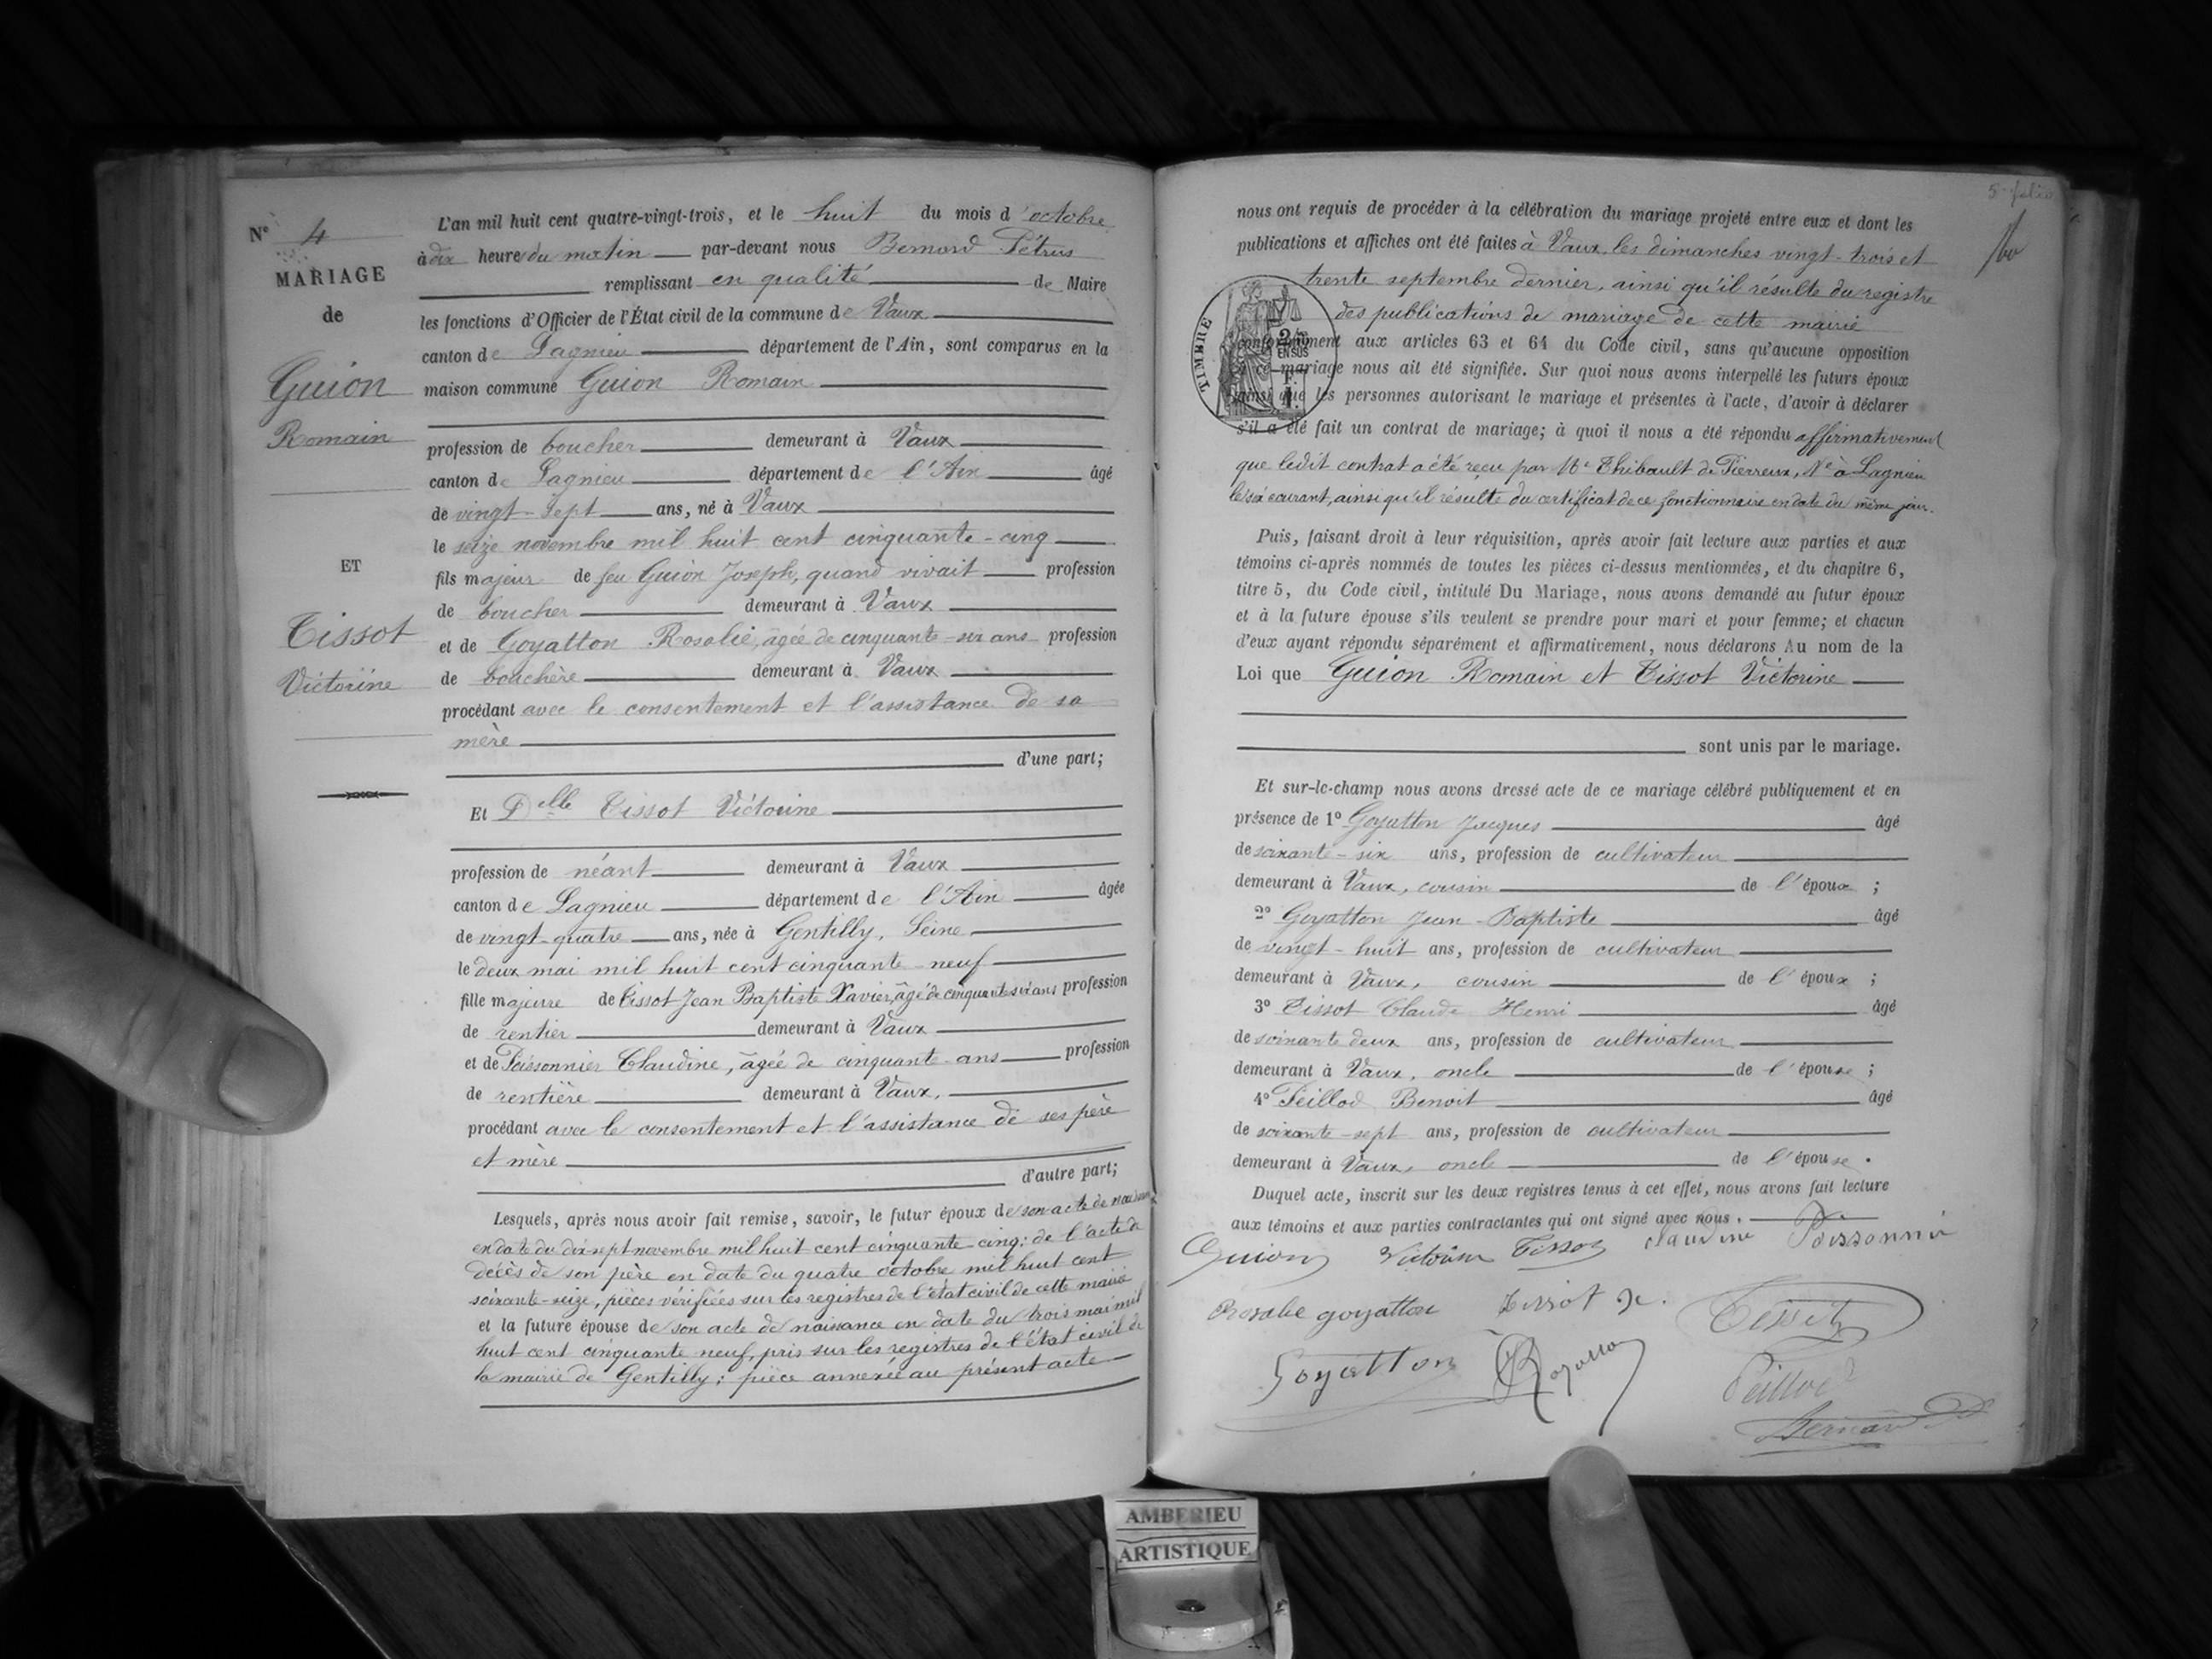 Nº 4
MARIAGE
de
Guion
Romain
ET
Tissot
Victorine
L'an mil huit cent quatre-vingt-trois, et le huit du mois d'octobre
à dix heure du matin par-devant nous Bernard Pétrus
remplissant en qualité de Maire
les fonctions d'Officier de l'État civil de la commune de Vaux
canton de Lagnieu département de l'Ain, sont comparus en la
maison commune Guion Romain
profession de boucher demeurant à Vaux
canton de Lagnieu département de l'Ain âgé
de vingt-sept ans, né à Vaux
le seize novembre mil huit cent cinquante-cinq
fils majeur de feu Guion Joseph, quand vivait profession
de boucher demeurant à Vaux
et de Goyatton Rosalie, âgée de cinquante-six ans profession
de bouchère demeurant à Vaux
procédant avec le consentement et l'assistance de sa
mère
d'une part;
Et Delle Tissot Victorine
profession de néant demeurant à Vaux
canton de Lagnieu département de l'Ain âgée
de vingt-quatre ans, née à Gentilly, Seine
le deux mai mil huit cent cinquante-neuf
fille majeure de Tissot Jean Baptiste Xavier, âgé de cinquante six ans profession
de rentier demeurant à Vaux
et de Poissonnier Claudine, âgée de cinquante ans profession
de rentière demeurant à Vaux,
procédant avec le consentement et l'assistance de ses père
et mère
d'autre part;
Lesquels, après nous avoir fait remise, savoir, le futur époux de son acte de naissance
en date du dix-sept novembre mil huit cent cinquante-cinq; de l'acte de
décès de son père en date du quatre octobre mil huit cent
soixante-seize, pièces vérifiées sur les registres de l'état civil de cette mairie
et la future épouse de son acte de naissance en date du trois mai mil
huit cent cinquante neuf, pris sur les registres de l'état civil de
la mairie de Gentilly; pièce annexée au présent acte
nous ont requis de procéder à la célébration du mariage projeté entre eux et dont les
publications et affiches ont été faites à Vaux, les dimanches vingt-trois et
trente septembre dernier, ainsi qu'il résulte du registre
des publications de mariage de cette mairie
conformément aux articles 63 et 64 du Code civil, sans qu'aucune opposition
à ce mariage nous ait été signifiée. Sur quoi nous avons interpellé les futurs époux
ainsi que les personnes autorisant le mariage et présentes à l'acte, d'avoir à déclarer
s'il a été fait un contrat de mariage; à quoi il nous a été répondu affirmativement
que ledit contrat a été reçu par Me Thibault de Pierreux, Nre à Lagnieu
le six courant, ainsi qu'il résulte du certificat de ce fonctionnaire en date du même jour.
TIMBRE
2/10
EN SUS
Puis, faisant droit à leur réquisition, après avoir fait lecture aux parties et aux
témoins ci-après nommés de toutes les pièces ci-dessus mentionnées, et du chapitre 6,
titre 5, du Code civil, intitulé Du Mariage, nous avons demandé au futur époux
et à la future épouse s'ils veulent se prendre pour mari et pour femme; et chacun
d'eux ayant répondu séparément et affirmativement, nous déclarons Au nom de la
Loi que Guion Romain et Tissot Victorine
sont unis par le mariage.
Et sur-le-champ nous avons dressé acte de ce mariage célébré publiquement et en
présence de 1º Goyatton Jacques âgé
de soixante-six ans, profession de cultivateur
demeurant à Vaux, cousin de l'époux ;
2º Goyatton Jean-Baptiste âgé
de vingt-huit ans, profession de cultivateur
demeurant à Vaux, cousin de l'époux ;
3º Tissot Claude Henri âgé
de soixante deux ans, profession de cultivateur
demeurant à Vaux, oncle de l'épouse ;
4º Peillod Benoit âgé
de soixante-sept ans, profession de cultivateur
demeurant à Vaux, oncle de l'épouse.
Duquel acte, inscrit sur les deux registres tenus à cet effet, nous avons fait lecture
aux témoins et aux parties contractantes qui ont signé avec nous.
Guion Victorine Tissot Claudine Poissonnier
Rosalie goyatton Tissot X. Tissot
Goyatton Goyatton Peillod
Bernard
AMBERIEU
ARTISTIQUE